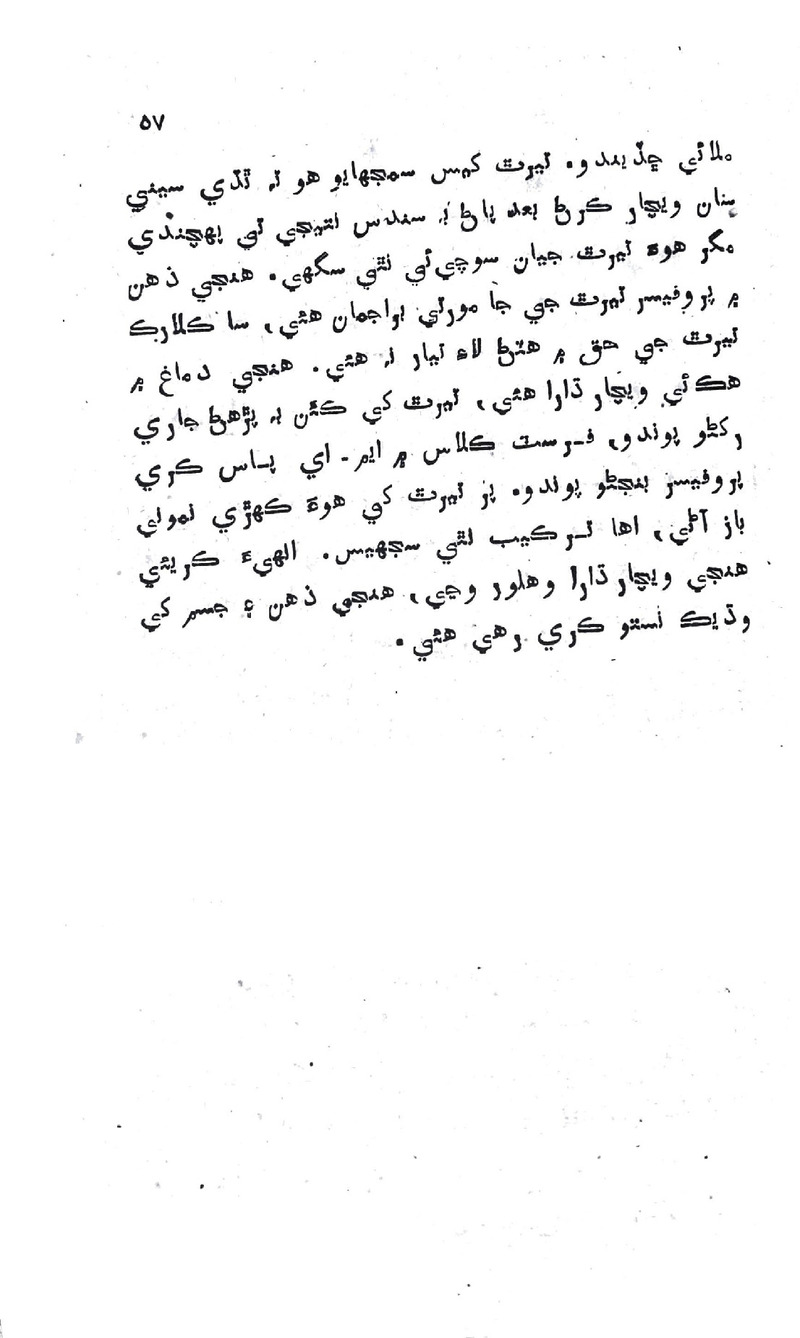 ۵۷
ملائي ڇڏيندو. تيرٿ کيس سمجھايو هو تہ ٿڌي سيني
سان ويچار ڪرڻ بعد پاڻ بہ سندس نتيجي تي پهچندي
مگر هوءَ تيرٿ جيان سوچي ئي نٿي سگهي. هنجي ذهن
۾ پروفيسر تيرٿ جي جا مورتي براجمان هئي، سا ڪلارڪ
تيرٿ جي حق ۾ هٽڻ لاءِ تيار نہ هئي. هنجي دماغ ۾
هڪ ئي ويچار ڌارا هئي، تيرٿ کي ڪئن بہ پڙهڻ جاري
رکڻو پوندو، فرسٽ ڪلاس ۾ ايم - اي پاس ڪري
پروفيسر بنجڻو پوندو. پر تيرٿ کي هوءَ ڪهڙي نموني
باز آڻي، اها ترڪيب نٿي سجھيس. انهيءَ ڪري ئي
هنجي ويچار ڌارا وهلور وڃي، هنجي ذهن ۽ جسم کي
وڌيڪ نستو ڪري رهي هئي.